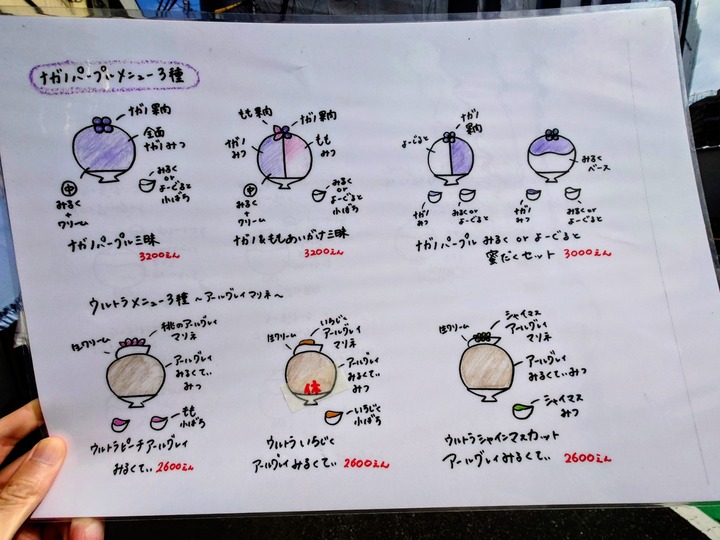 ナガノパープルメニュー3種
ナガノ果肉
全面
ナガノみつ
中
みるく
+
クリーム
みるく or
よーぐると
小ばち
ナガノパープル三昧
3200えん
もも果肉
ナガノ果肉
ナガノ
みつ
もも
みつ
中
みるく
+
クリーム
みるく
or
よーぐると
小ばち
ナガノ&ももあいがけ三昧
3200えん
ナガノ
果肉
よーぐると
ナガノ
みつ
みるく or
よーぐると
みるく
ベース
ナガノ
みつ
みるく or
よーぐると
ナガノパープル みるく or よーぐると
蜜だくセット 3000えん
ウルトラメニュー3種 ~アールグレイマリネ~
生クリーム
桃のアールグレイ
マリネ
アールグレイ
みるくてぃ
みつ
もも
小ばち
ウルトラピーチアールグレイ
みるくてぃ 2600えん
生クリーム
いちじく
アールグレイ
マリネ
アールグレイ
みるくてぃ
みつ
休
いちじく
小ばち
ウルトラいちじく
アールグレイみるくてぃ 2600えん
生クリーム
シャイマス
アールグレイ
マリネ
アールグレイ
みるくてぃみつ
シャイマス
みつ
ウルトラシャインマスカット
アールグレイみるくてぃ 2600えん